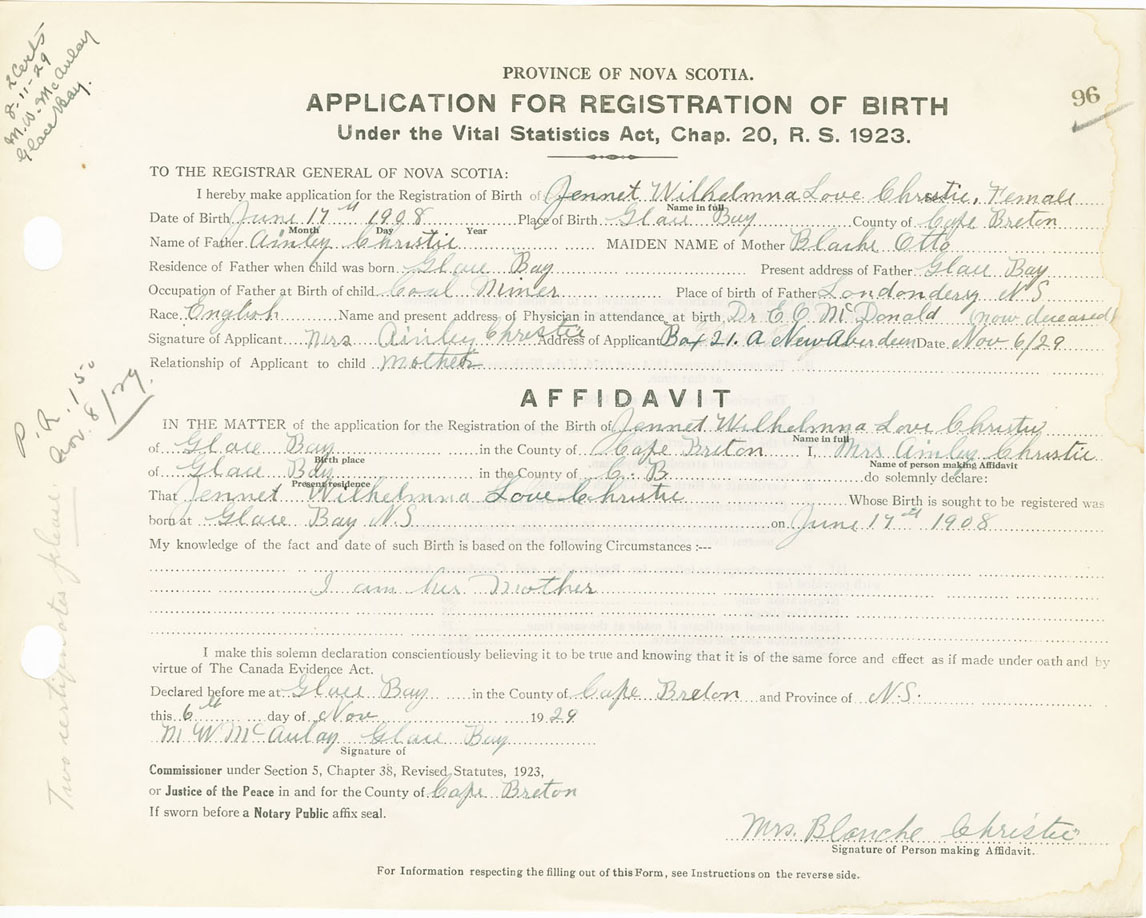 2 Certs
8-11-29
M. W. McAulay
Glace Bay.
96
PROVINCE OF NOVA SCOTIA.
APPLICATION FOR REGISTRATION OF BIRTH
Under the Vital Statistics Act, Chap. 20, R. S. 1923.
TO THE REGISTRAR GENERAL OF NOVA SCOTIA:
I hereby make application for the Registration of Birth of Jennet Wilhelmna Love Christie, Female
Name in full
Date of Birth June 17th 1908 Place of Birth Glace Bay County of Cape Breton
Month Day Year
Name of Father Ainley Christie MAIDEN NAME of Mother Blache Otto
Residence of Father when child was born Glace Bay Present address of Father Glace Bay
Occupation of Father at Birth of child Coal Miner Place of birth of Father Londondery N S
Race English Name and present address of Physician in attendance at birth Dr E O McDonald (now deceased)
Signature of Applicant Mrs Ainley Christie Address of Applicant Box 21. A New Aberdeen Date Nov 6/29
Relationship of Applicant to child Mother
P.R. 150
Nov. 8/29.
AFFIDAVIT
IN THE MATTER of the application for the Registration of the Birth of Jennet Wilhelmna Love Christie
Name in full
of Glace Bay in the County of Cape Breton I, Mrs Ainley Christie
Birth place Name of person making Affidavit
of Glace Bay in the County of C. B do solemnly declare:
Present residence
That Jennet Wilhelmna Love Christie Whose Birth is sought to be registered was
born at Glace Bay N S on June 17th 1908
My knowledge of the fact and date of such Birth is based on the following Circumstances :---
I am her Mother
Two certificates please
I make this solemn declaration conscientiously believing it to be true and knowing that it is of the same force and effect as if made under oath and by
virtue of The Canada Evidence Act.
Declared before me at Glace Bay in the County of Cape Breton and Province of N.S.
this 6th day of Nov 1929
M W McAulay Glace Bay
Signature of
Commissioner under Section 5, Chapter 38, Revised Statutes, 1923,
or Justice of the Peace in and for the County of Cape Breton
If sworn before a Notary Public affix seal.
Mrs. Blanche Christie
Signature of Person making Affidavit.
For Information respecting the filling out of this Form, see Instructions on the reverse side.